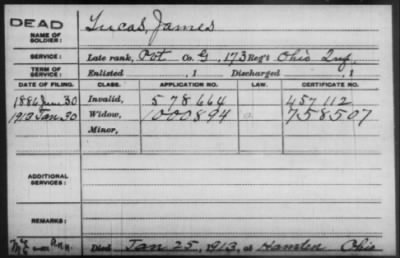 DEAD
NAME OF SOLDIER: Lucas, James
SERVICE: Late rank, Pvt Co. G, 173 Reg't Ohio Inf.
TERM OF SERVICE: Enlisted , 1 Discharged , 1
DATE OF FILING. CLASS. APPLICATION NO. LAW. CERTIFICATE NO.
1886 June 30 Invalid, 578664 457112
1913 Jan 30 Widow, 1000894 758507
Minor,
ADDITIONAL SERVICES:
REMARKS:
Died Jan 25, 1913, at Hamden Ohio